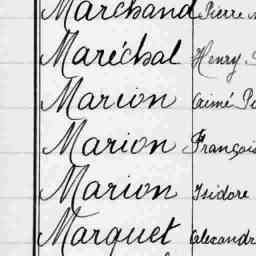 Marchand Pierre
Maréchal Henry
Marion Aimé
Marion François
Marion Isidore
Marquet Alexandr